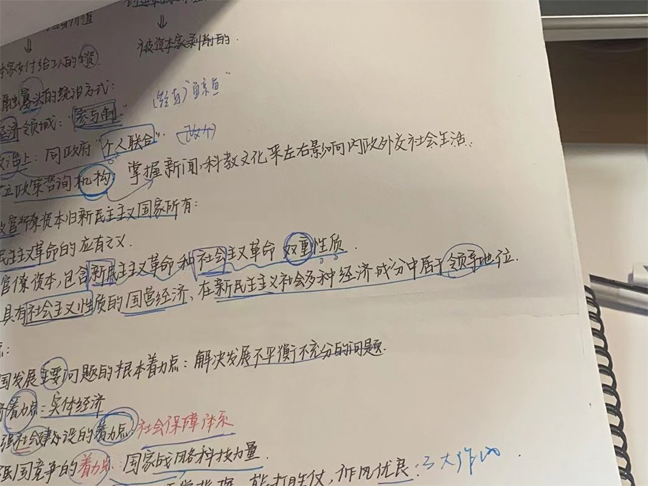 ↓ ↓
被资本家剥削的.
家支付给工人的
寡头的统治方式:
经济领域: "参与制"
政治上: 同政府"个人联合".
立政策咨询机构: 掌握新闻.科教文化来左右影响内政外交社会生活.
官僚资本归新民主主义国家所有:
民主主义革命的应有之义.
官僚资本,包含新民主主义革命和社会主义革命 双重性质.
具有社会主义性质的国营经济、在新民主主义社会多种经济成分中居于领导地位.
点:
国发展主要问题的根本着力点: 解决发展不平衡不充分的问题.
着力点: 实体经济
强社会建设的着力点 社会保障体系
强国竞争的着力点: 国家战略科技力量
能打胜仗, 作风优良: